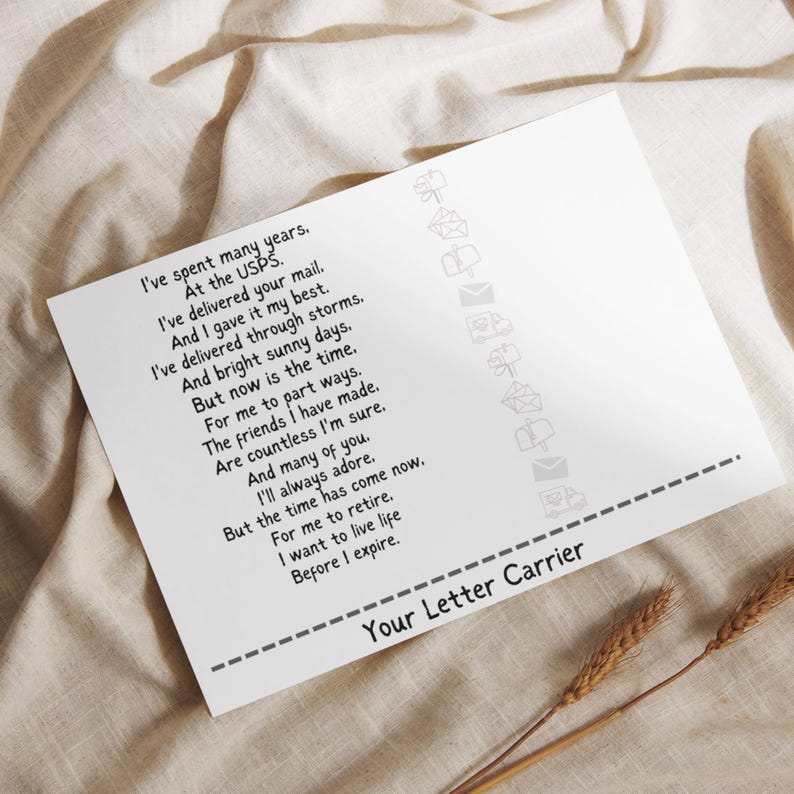 I've spent many years,
At the USPS.
I've delivered your mail,
And I gave it my best.
I've delivered through storms,
And bright sunny days,
But now is the time,
For me to part ways.
The friends I have made,
Are countless I'm sure,
And many of you,
I'll always adore,
But the time has come now,
For me to retire,
I want to live life
Before I expire.
Your Letter Carrier